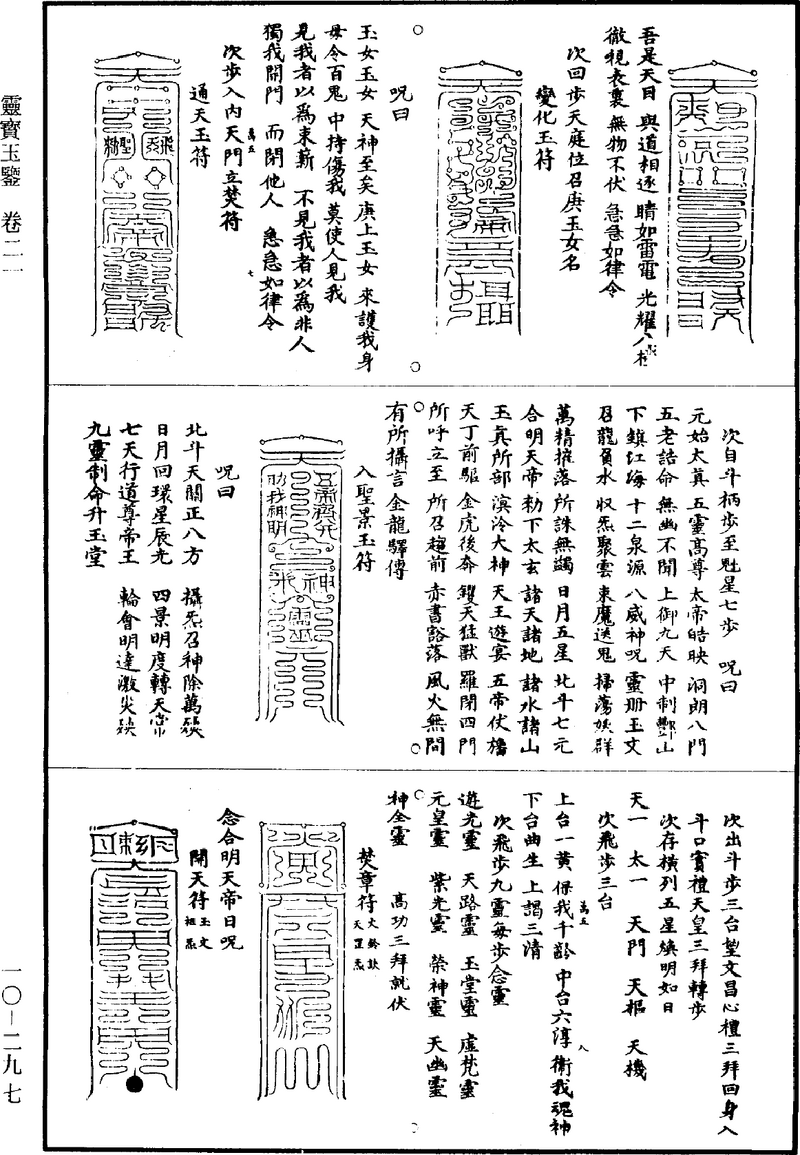 靈寶玉鑒 卷二一
一〇—二九七
吾是天目 與道相逐 睛如雷電 光耀八極
徹視表裏 無物不伏 急急如律令
次回步天庭位召庚玉女名
變化玉符
呪曰
玉女玉女 天神至矣 庚上玉女 來護我身
毋令百鬼 中持傷我 莫使人見我
見我者以爲束薪 不見我者以爲非人
獨我開門 而閉他人 急急如律令
七
次步入內天門立焚符
萬五
通天玉符
次自斗柄步至魁星七步 呪曰
元始太真 五靈高尊 太帝皓映 洞朗八門
五老誥命 無幽不聞 上御九天 中制酆山
下鎮江海 十二泉源 八威神呪 靈册玉文
召龍負水 收炁聚雲 束魔送鬼 掃蕩妖群
萬精摧落 所誅無蠲 日月五星 北斗七元
合明天帝 勑下太玄 諸天諸地 諸水諸山
玉真所部 溟泠大神 天王遊宴 五帝伏旛
天丁前驅 金虎後奔 雙天猛獸 羅閉四門
所呼立至 所召趨前 赤書豁落 風火無間
有所攝言 金龍驛傳
入聖景玉符
呪曰
北斗天關正八方 攝炁召神除萬殃
日月回環星辰光 四景明度轉天常
七天行道尊帝王 輪會明達激火燄
九靈制命升玉堂
次出斗步三台望文昌心禮三拜回身入
斗口賓禮天皇三拜轉步
次存橫列五星煥明如日
天一 太一 天門 天樞 天機
次飛步三台
上台一黃 保我千齡 中台六淳 衛我魂神
萬五
八
下台曲生 上謁三清
次飛步九靈每步念靈
遊光靈 天路靈 玉堂靈 虛梵靈
元皇靈 紫光靈 榮神靈 天幽靈
神全靈 高功三拜就伏
焚章符
念合明天帝日呪
開天符
玉文
祖炁